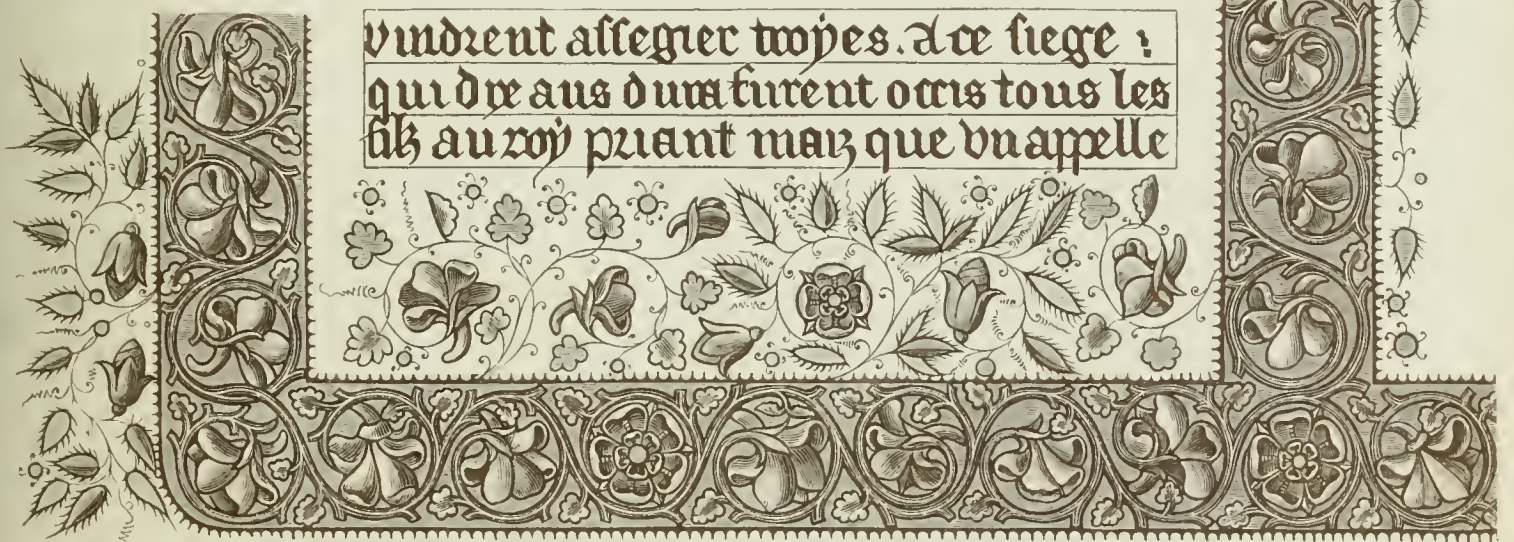 vindrent assegier troyes. A ce siege :
qui dix ans dura furent occis tous les
filz au roy priant maiz que vn appelle